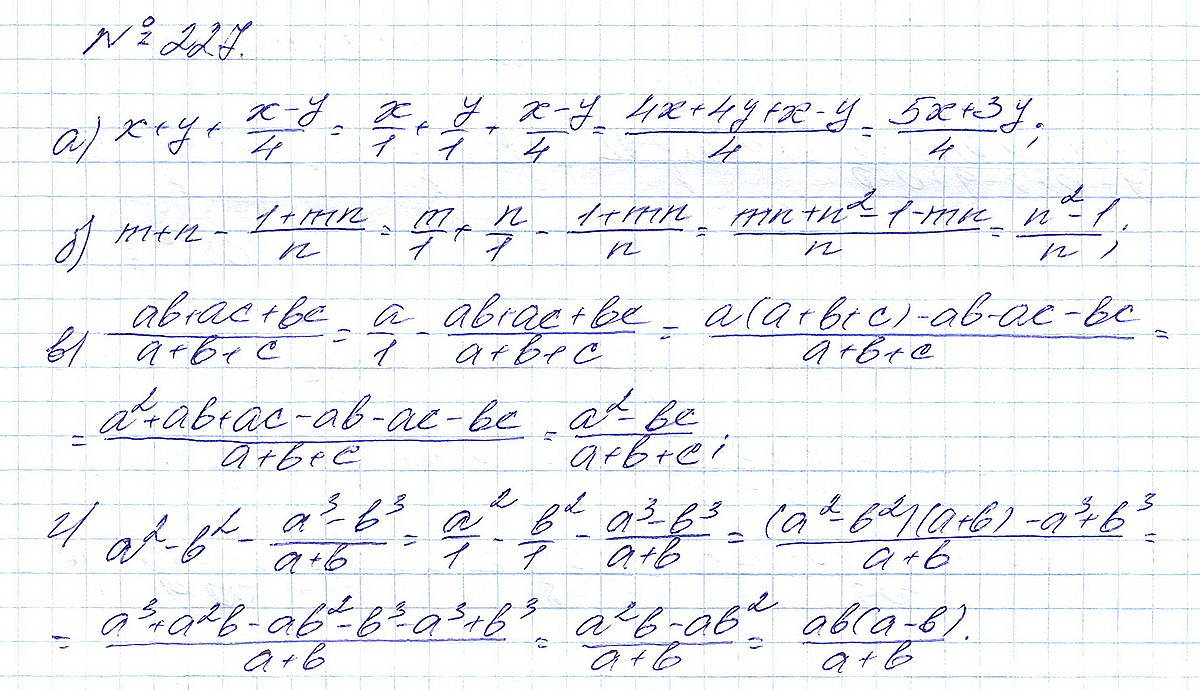 № 227.
а) x+y+ (x-y)/4 = x/1 + y/1 + (x-y)/4 = (4x+4y+x-y)/4 = (5x+3y)/4;
б) m+n - (1+mn)/n = m/1 + n/1 - (1+mn)/n = (mn+n²-1-mn)/n = (n²-1)/n;
в) (ab+ac+bc)/(a+b+c) = a/1 - (ab+ac+bc)/(a+b+c) = (a(a+b+c)-ab-ac-bc)/(a+b+c) =
= (a²+ab+ac-ab-ac-bc)/(a+b+c) = (a²-bc)/(a+b+c);
г) a²-b²- (a³-b³)/(a+b) = a²/1 - b²/1 - (a³-b³)/(a+b) = ((a²-b²)(a+b)-a³+b³)/(a+b) =
= (a³+a²b-ab²-b³-a³+b³)/(a+b) = (a²b-ab²)/(a+b) = ab(a-b)/(a+b).